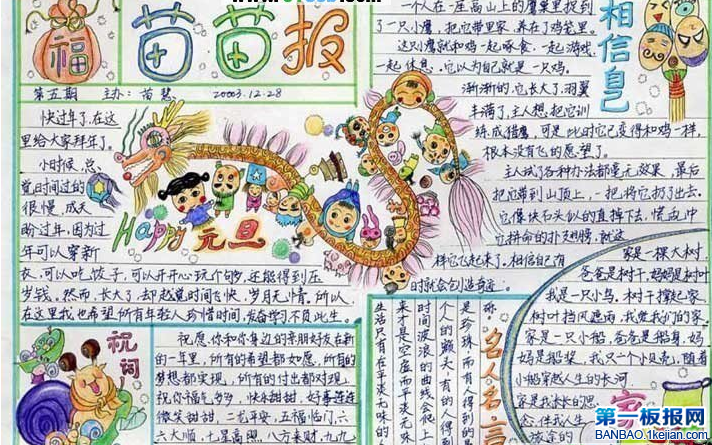 福
苗苗报
第五期 主办：苗慧 2003.12.28
快过年了，在这
里给大家拜年了。
小时候，总
觉时间过的
很慢，成天
盼过年，因为过
年可以穿新
衣，可以吃饺子，可以开开心玩个够，还能得到压
岁钱。然而，长大了，却越觉时间飞快，岁月无情，所以，
在这里我也希望所有年轻人珍惜时间，发奋学习不负此生。
Happy 元旦
相信自己
一个人在一座高山上的鹰巢里捉到
了一只小鹰，把它带里家，养在了鸡笼里。
这只鹰就和鸡一起啄食，一起游戏
一起休息，它以为自己就是一只鸡。
渐渐的，它长大了，羽翼
丰满了，主人想，把它训
练成猎鹰，可是，此时它已变得和鸡一样，
根本没有飞的愿望了。
主人试了各种办法都毫无效果，最后
把它带到山顶上，一把将它扔了出去。
它像块石头似的直掉下去，慌乱中
它拼命的扑打翅膀，就这
样，它飞起来了。相信自己有
时就会创造奇迹
祝词
祝愿你和你身边的亲朋好友在新
的一年里，所有的希望都如愿，所有的
梦想都实现，所有的付出都对现，
祝你福气多多，快乐甜甜，好事连连
微笑甜甜，二龙弄安，五福临门，六
六大顺，七星高照，八方来财，九九
名人名言
是珍珠，而有的人得到
个人的额头，有的人得
时间波浪的曲线会忧
来才是空虚而平淡无味
生活只有在平淡无味的
家
家是一棵大树，
爸爸是树干，妈妈是树叶
我是一只小鸟，树干撑起家
树叶挡风遮雨，我爱我们的家。
家是一只小船，爸爸是船身，妈
妈是船桨，我只一个小贝壳，随着
小船穿越人生的长河。
家是我成长的
第一板报网
BANBAO.1kejian.com